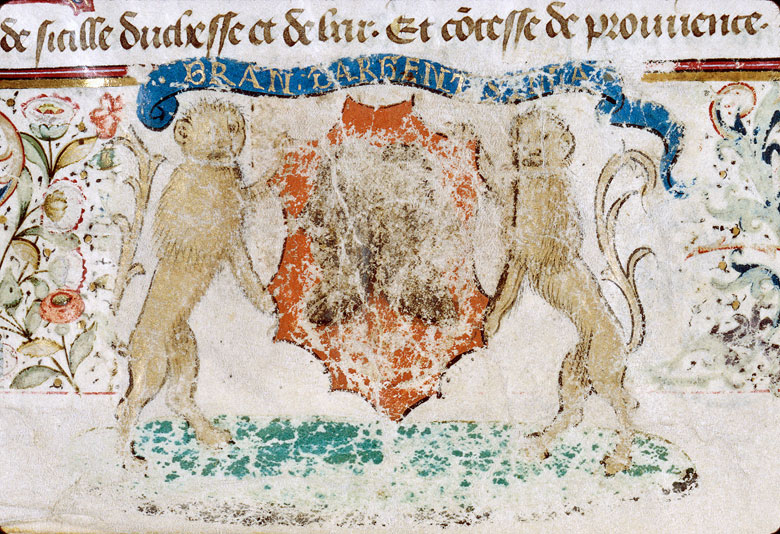 de sicille duchesse et de bar. Et cōtesse de prouuence.
GRAN TARGENT